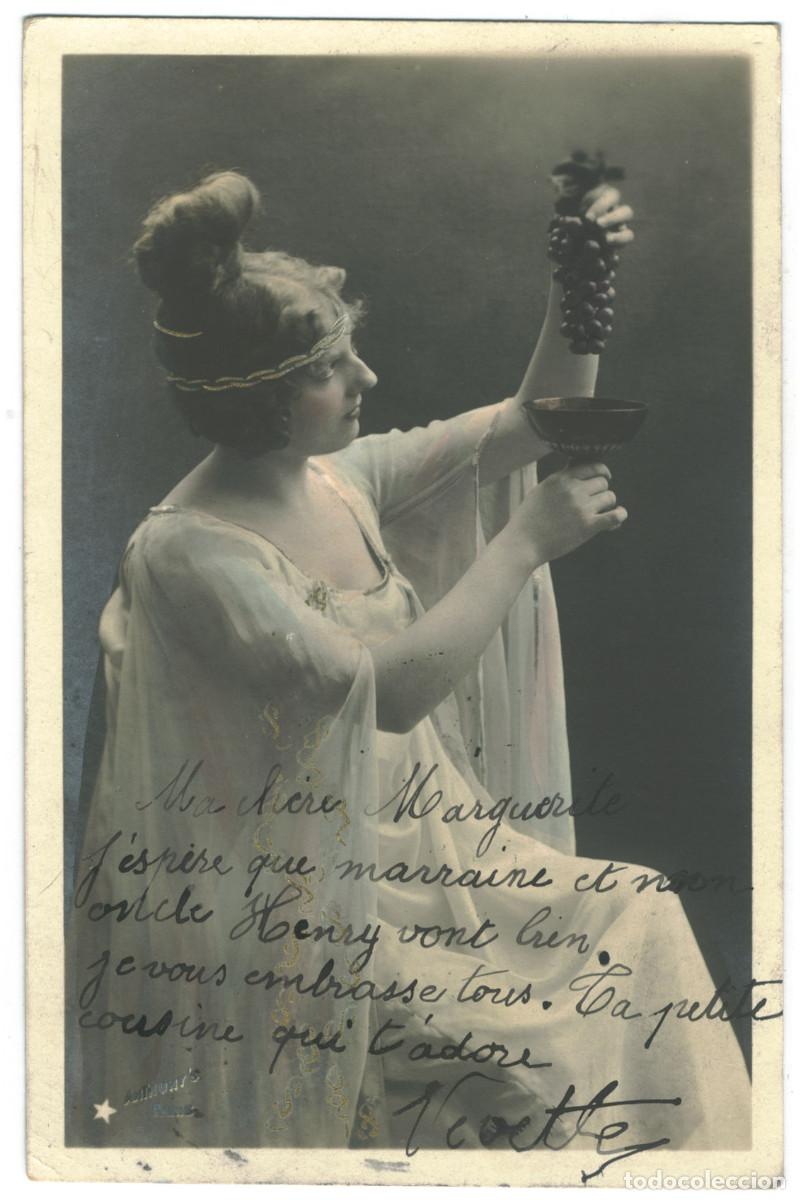 Ma chère Marguerite
j'éspère que marraine et mon
oncle Henry vont bien.
je vous embrasse tous. Ta petite
cousine qui t'adore
Vevette
ANTHONY'S
PARIS
todocoleccion
todocoleccion.net